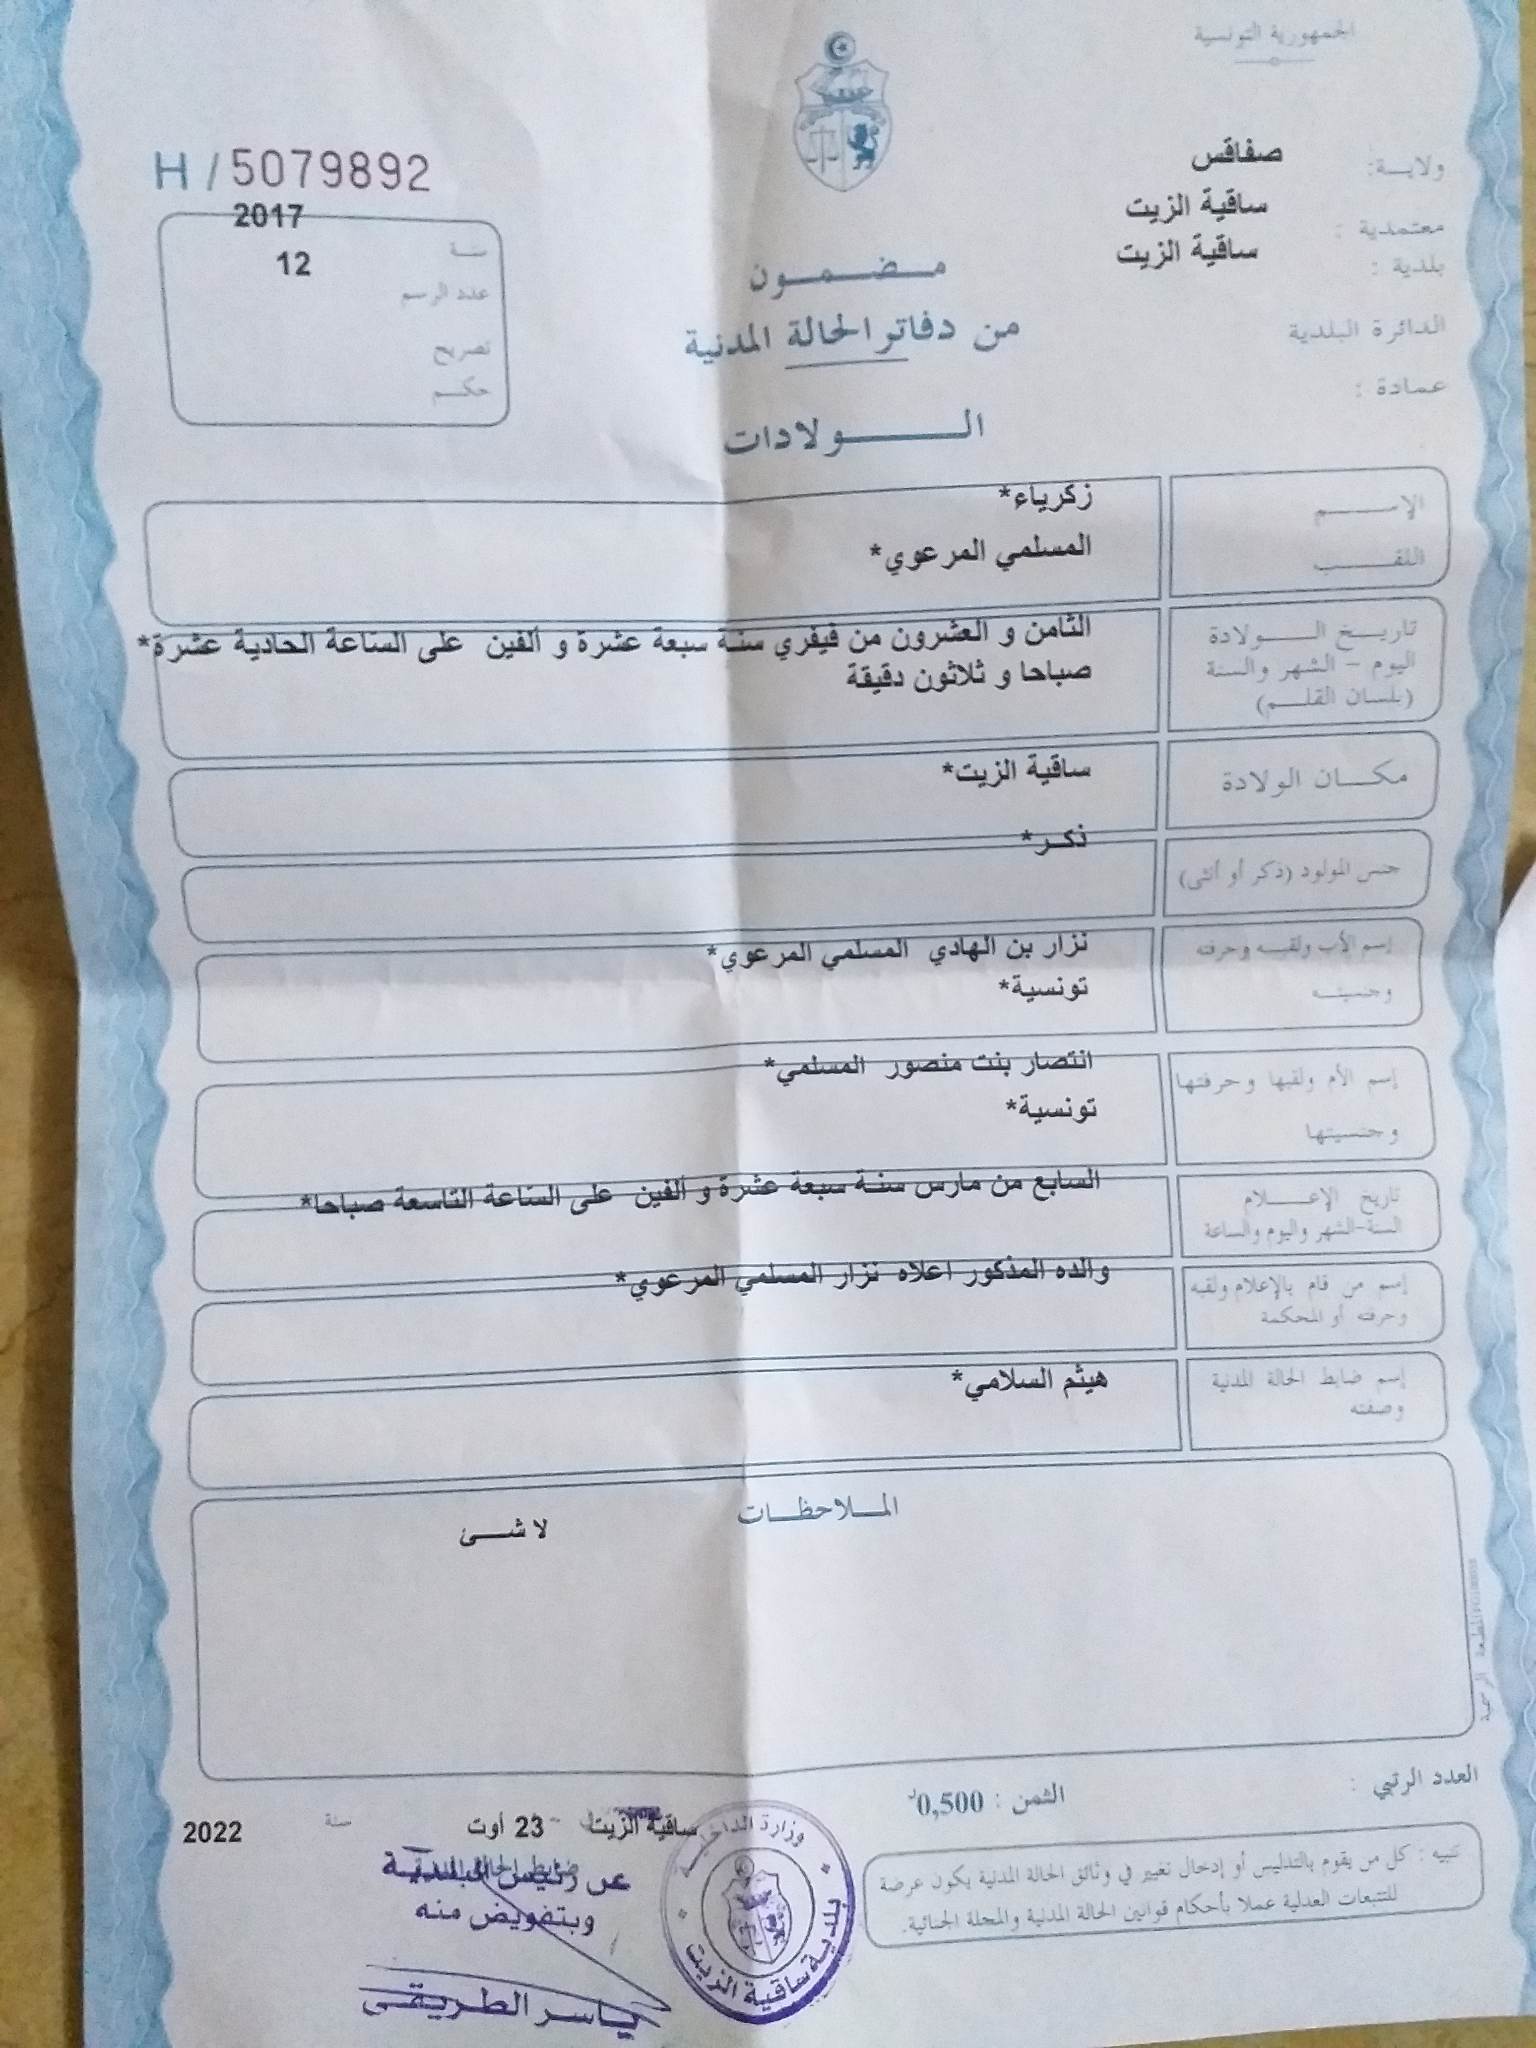 الجمهورية التونسية
ولاية: صفاقس
معتمدية : ساقية الزيت
بلدية : ساقية الزيت
الدائرة البلدية
عمادة :
H / 5079892
سنة 2017
عدد الرسم 12
تصريح
حكم
مضمون
من دفاتر الحالة المدنية
الولادات
الإسم زكرياء*
اللقب المسلمي المرعوي*
تاريخ الولادة
اليوم - الشهر والسنة
(بلسان القلم)
الثامن و العشرون من فيفري سنة سبعة عشرة و ألفين على الساعة الحادية عشرة*
صباحا و ثلاثون دقيقة
مكان الولادة ساقية الزيت*
جنس المولود (ذكر أو أنثى) ذكر*
إسم الأب ولقبه وحرفته
وجنسيته
نزار بن الهادي المسلمي المرعوي*
تونسية*
إسم الأم ولقبها وحرفتها
وجنسيتها
انتصار بنت منصور المسلمي*
تونسية*
تاريخ الإعلام
السنة-الشهر واليوم والساعة
السابع من مارس سنة سبعة عشرة و ألفين على الساعة التاسعة صباحا*
إسم من قام بالإعلام ولقبه
وحرفته أو المحكمة
والده المذكور اعلاه نزار المسلمي المرعوي*
إسم ضابط الحالة المدنية
وصفته
هيثم السلامي*
الملاحظات
لا شئ
العدد الرتبي :
الثمن : 0,500د
تنبيه : كل من يقوم بالتدليس أو إدخال تغيير في وثائق الحالة المدنية يكون عرضة
للتتبعات العدلية عملا بأحكام قوانين الحالة المدنية والمجلة الجنائية.
ساقية الزيت - 23 أوت سنة 2022
ضابط الحالة المدنية
عن رئيس البلدية
وبتفويض منه
ياسر الطريقي
وزارة الداخلية
بلدية ساقية الزيت